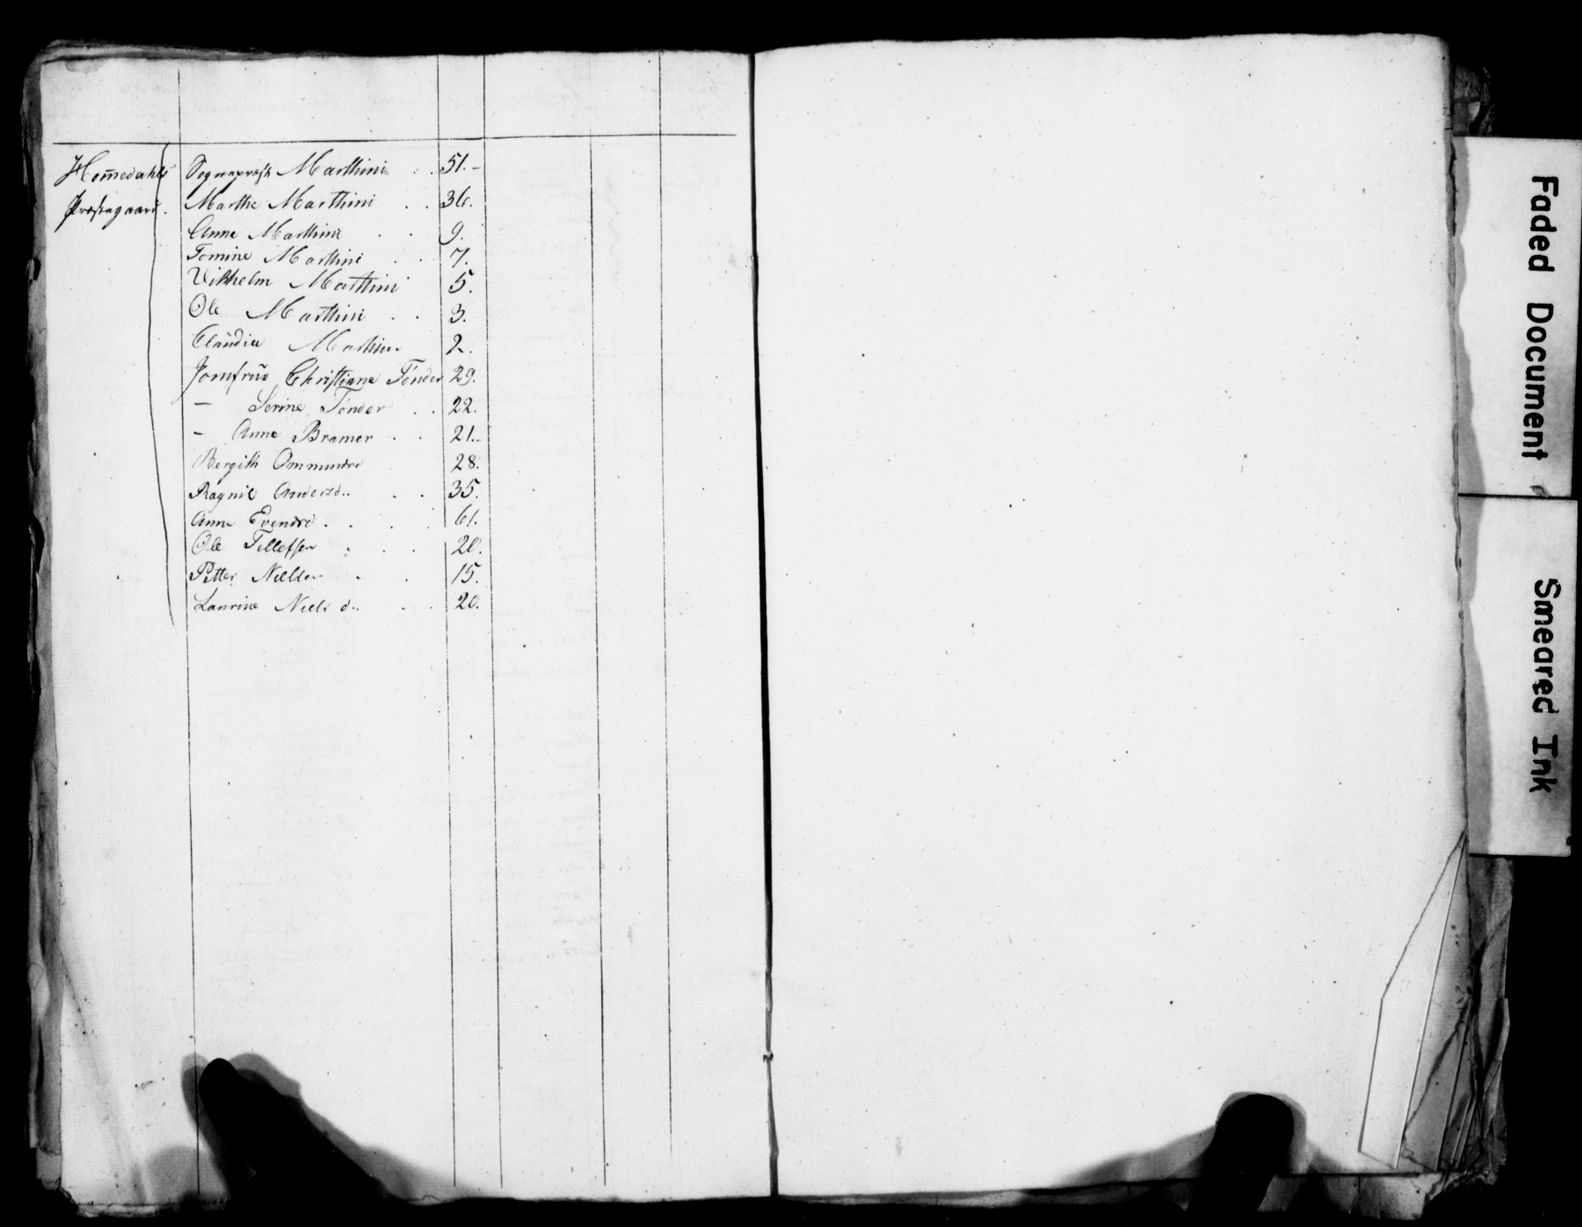 Homedahls Sogneprest Marthini . . 51.-
Præstegaard. Marthe Marthini . . 36.
Anne Marthini . . 9.
Tomine Marthini . . 7.
Vilhelm Marthini 5.
Ole Marthini . . 3.
Claudia Marthini 2.
Jomfrue Christiane Tönder 29.
— Serine Tönder . . 22.
— Anne Bramer . . 21.-
Bergith Ommundsd 28.
Ragnil Andersd.. . . 35.
Anne Evensd . . . . 61.
Ole Tellefsen . . . 20.
Petter Nielsen . . 15.
Laurine Niels d.. . . 20.
Faded Document
Smeared Ink